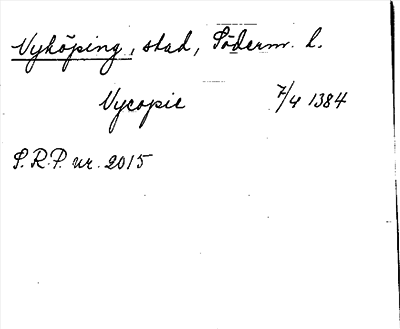 Nyköping, stad, Söderm. l.
Nycopie 7/4 1384
S.R.P. nr. 2015